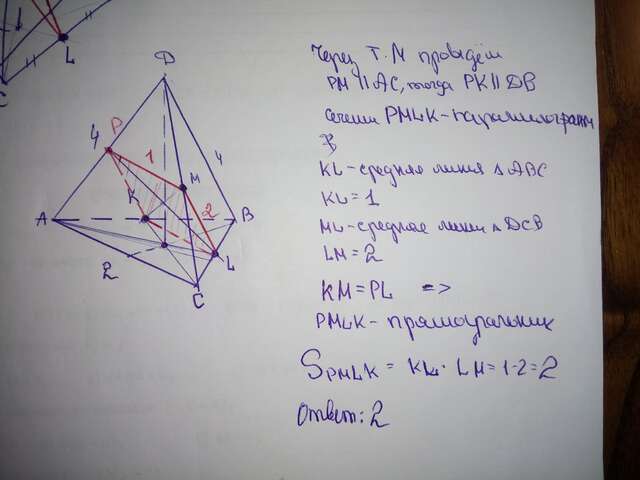 A
4
P
2
K
1
D
C
M
2
L
B
4
L
Через т. M проведём
PM || AC, тогда PK || DB
сечении PMLK - параллелограмм
KL - средняя линия △ ABC
KL = 1
ML - средняя линия △ DCB
LM = 2
KM = PL =>
PMLK - прямоугольник
S PMLK = KL · LM = 1·2 = 2
Ответ: 2